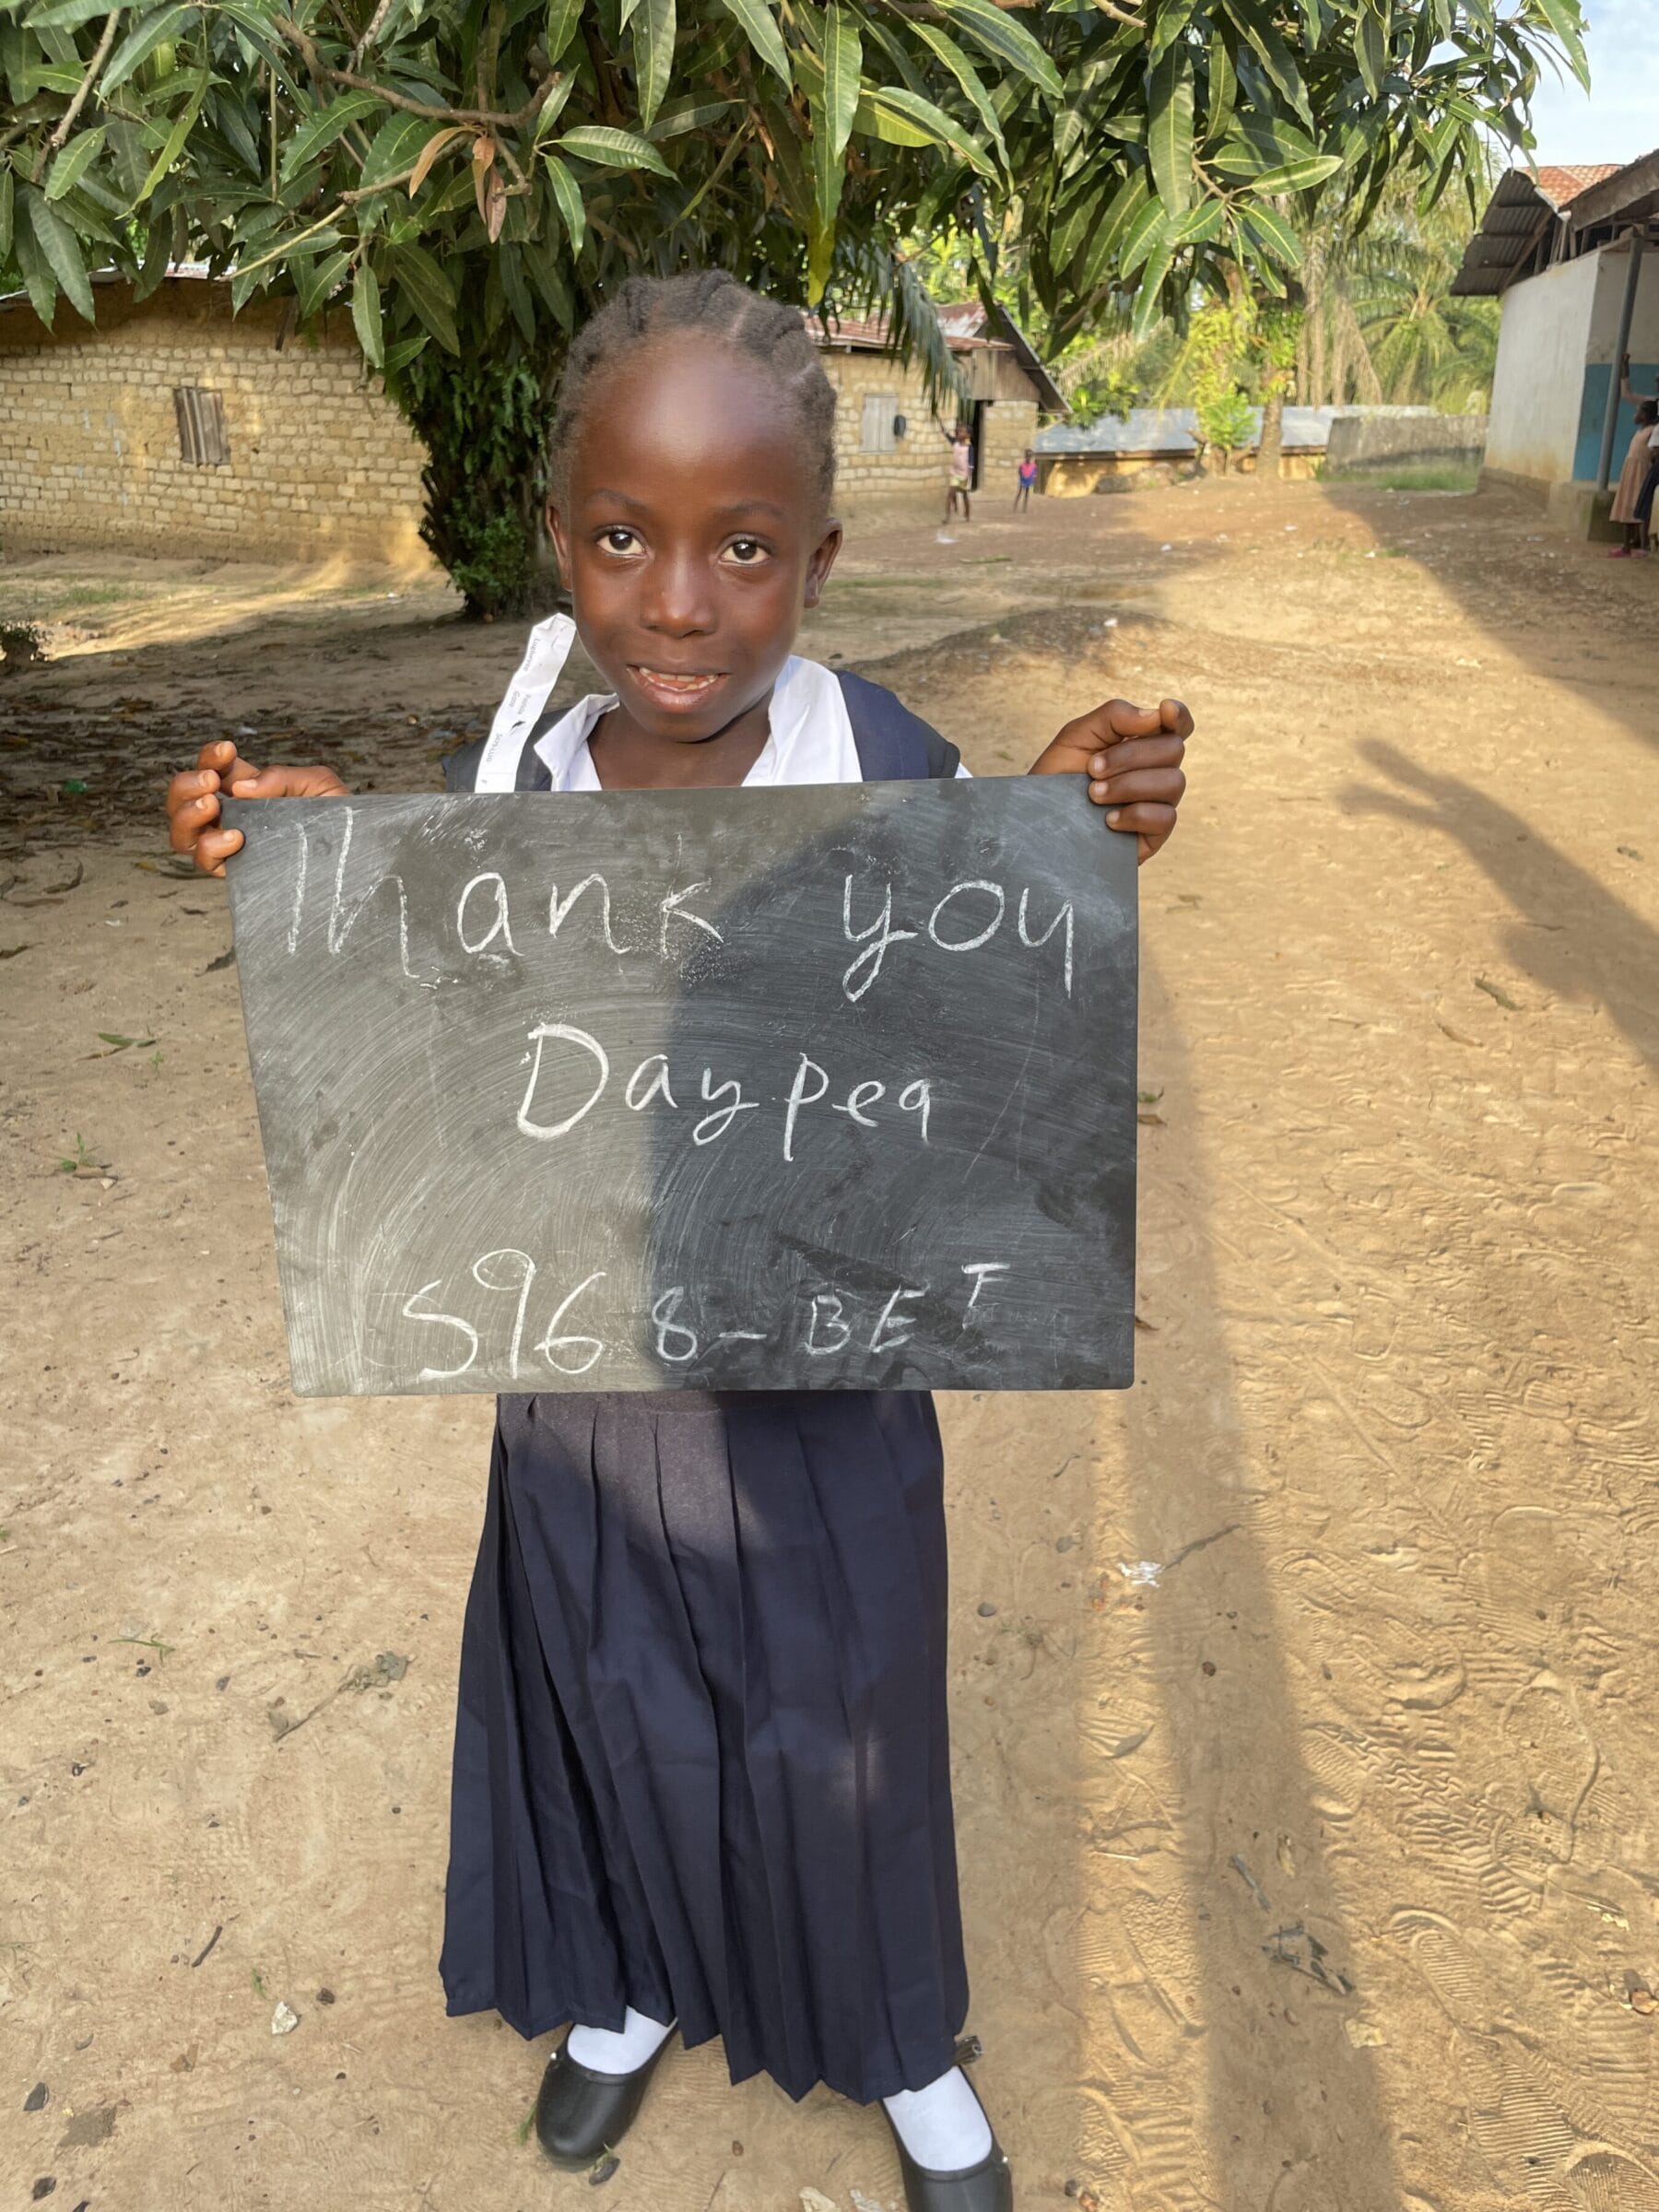 Thank you
Daypea
S968-BET